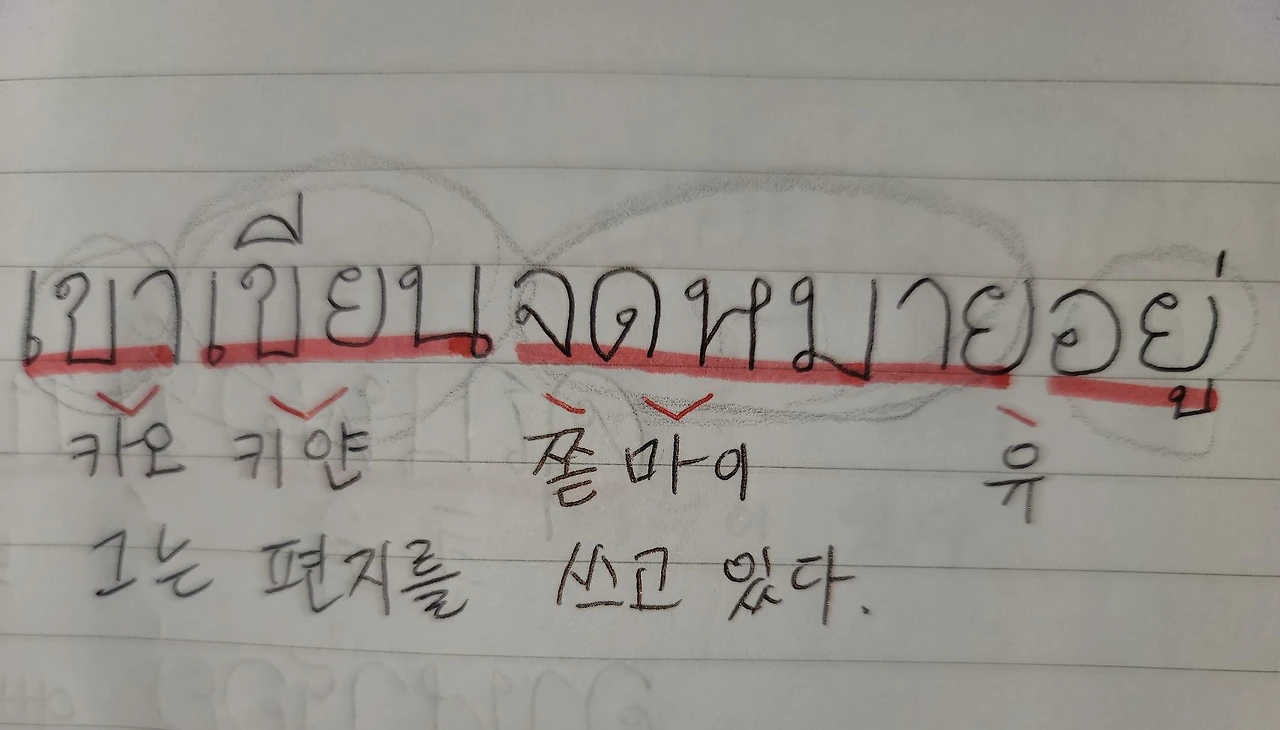 เขาเขียนจดหมายอยู่
카오 키얀 쫃 마이 유
그는 편지를 쓰고 있다.